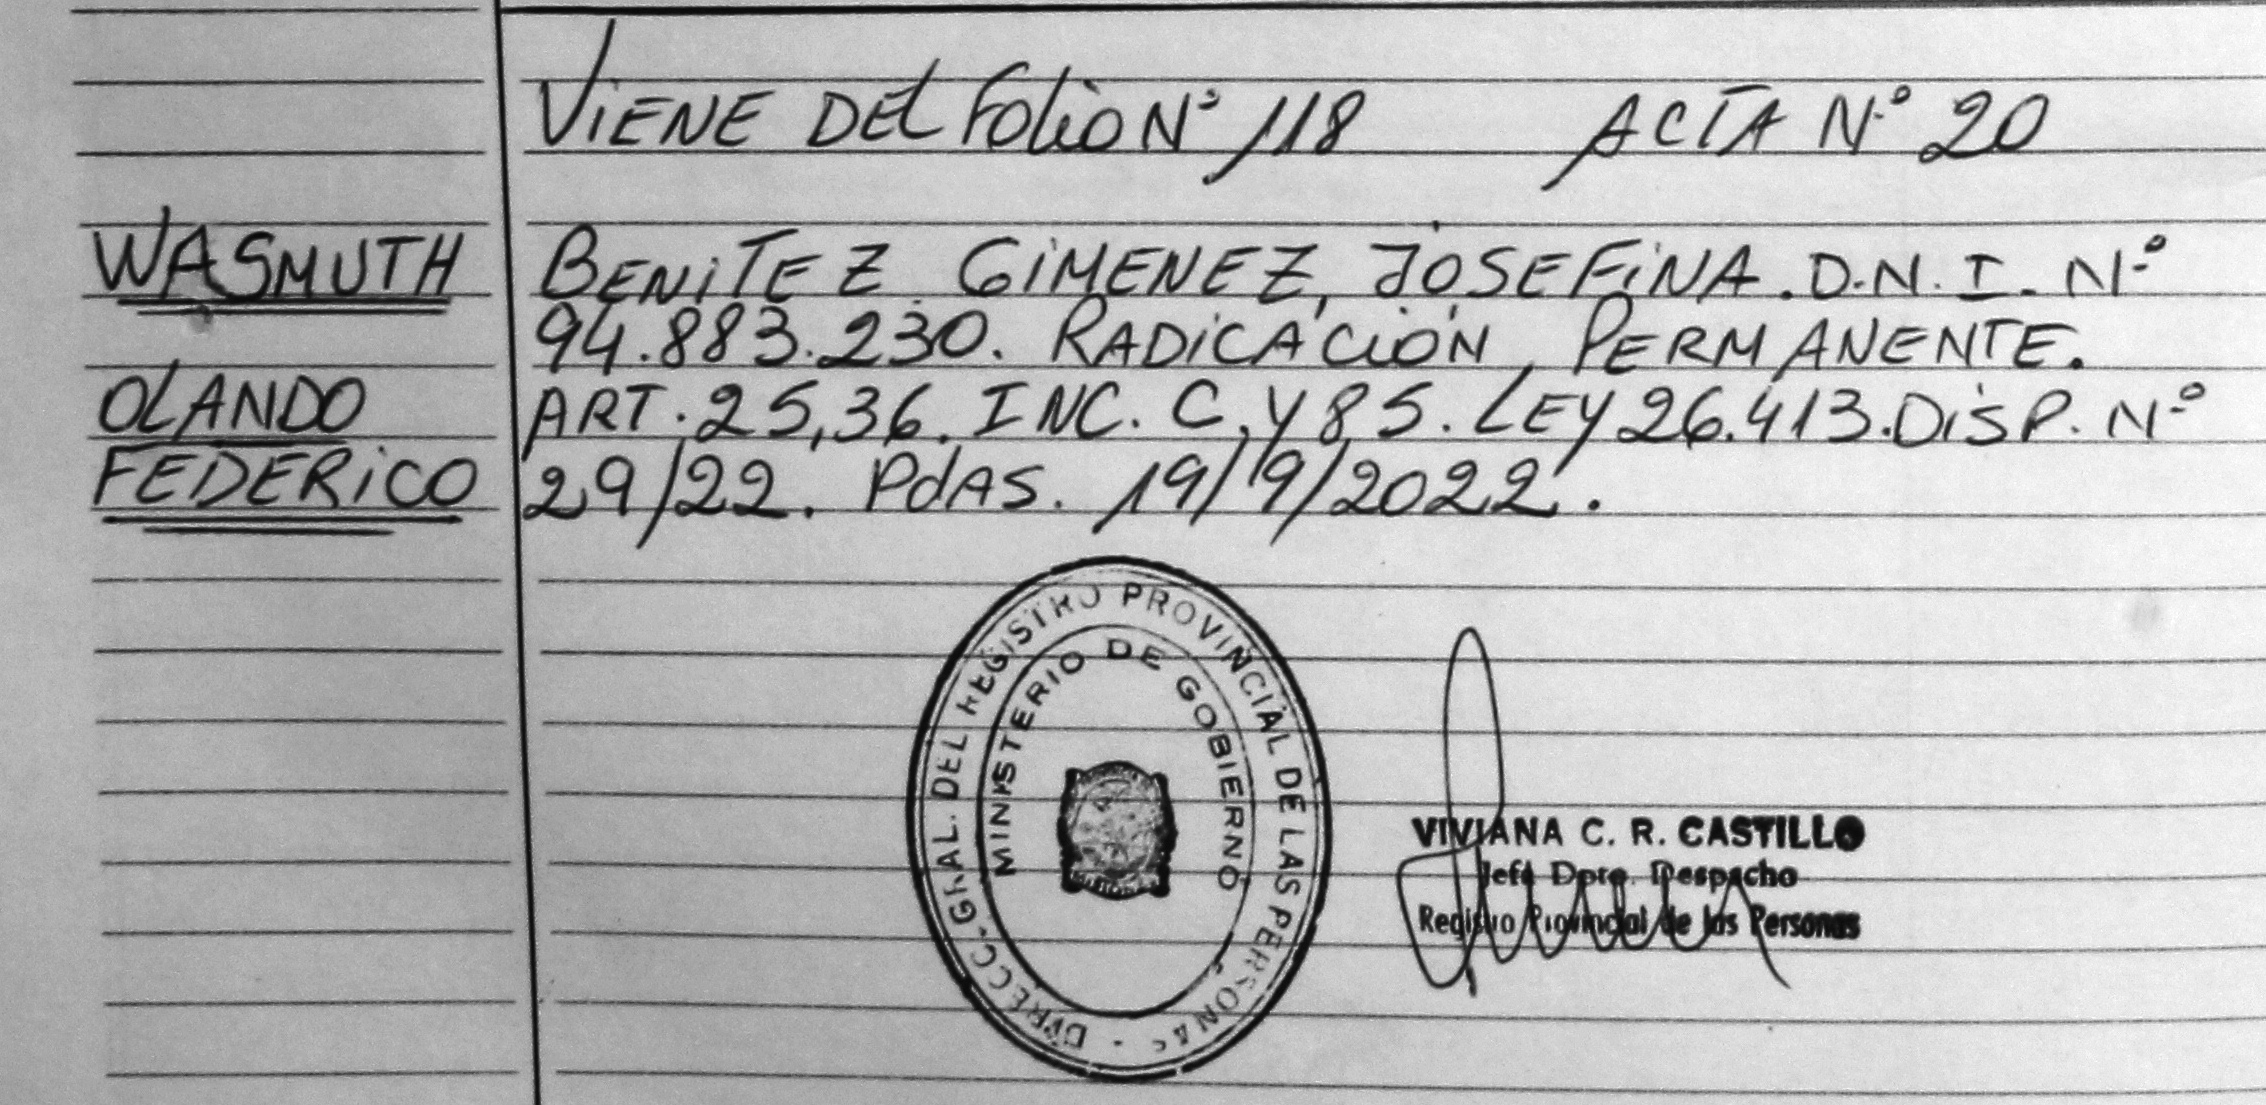 VIENE DEL FOLIO N° 118 ACTA N° 20
WASMUTH
OLANDO
FEDERICO
BENITEZ GIMENEZ, JOSEFINA. D.N.I. N°
94.883.230. RADICACIÓN PERMANENTE.
ART. 25,36. INC. C, Y 85. LEY 26.413. DISP. N°
29/22. PDAS. 19/9/2022.
DIRECC. GRAL. DEL REGISTRO PROVINCIAL DE LAS PERSONAS
MINISTERIO DE GOBIERNO
VIVIANA C. R. CASTILLO
Jefe Dpto. Despacho
Registro Provincial de las Personas